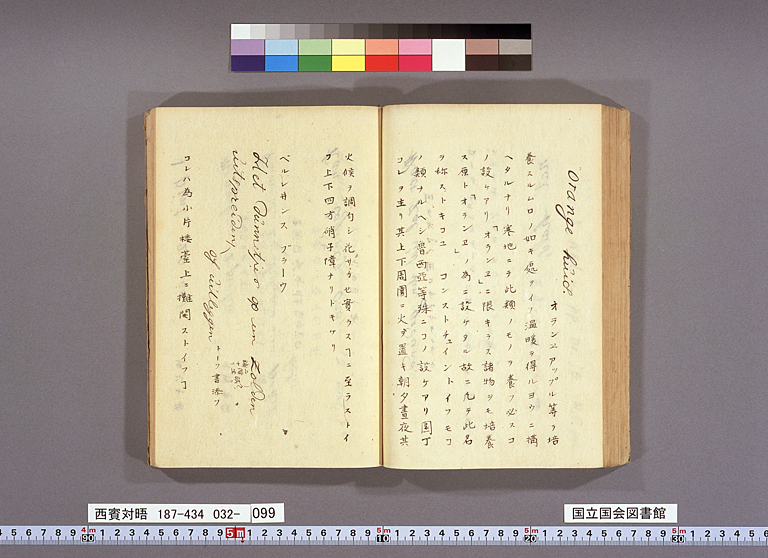 orange huid.
オランエアップル等ヲ培
養スルムロノ如キ処ヲイフ温暖ヲ得ルヨウニ構
ヘタルナリ寒地ニテ此類ノモノヲ養フ必スコ
ノ設ケアリ「オランエ」ニ限キラス諸物ヲモ培養
ス原ト「オランエ」ノ為ニ設ケタル故ニ凡テ此名
ヲ称ストキコユ コンストチュイントイフモコ
ノ類ナルヘシ魯西亜等殊ニコノ設ケアリ園丁
コレヲ主リ其上下周囲ニ火ヲ置キ朝夕昼夜其
火候ヲ調匀シ花サカセ實ラスコニ至ラストイ
フ上下四方硝子障ナリトキケリ
ヘルシキンス ブラーウ
Het dunnetjes op een zoldar
uitspreiden
of uitleggen トーフ書添フ
コレハ為小片楼臺上ニ攤開ストイフコ
西賓対晤 187-434 032-099
国立国会図書館